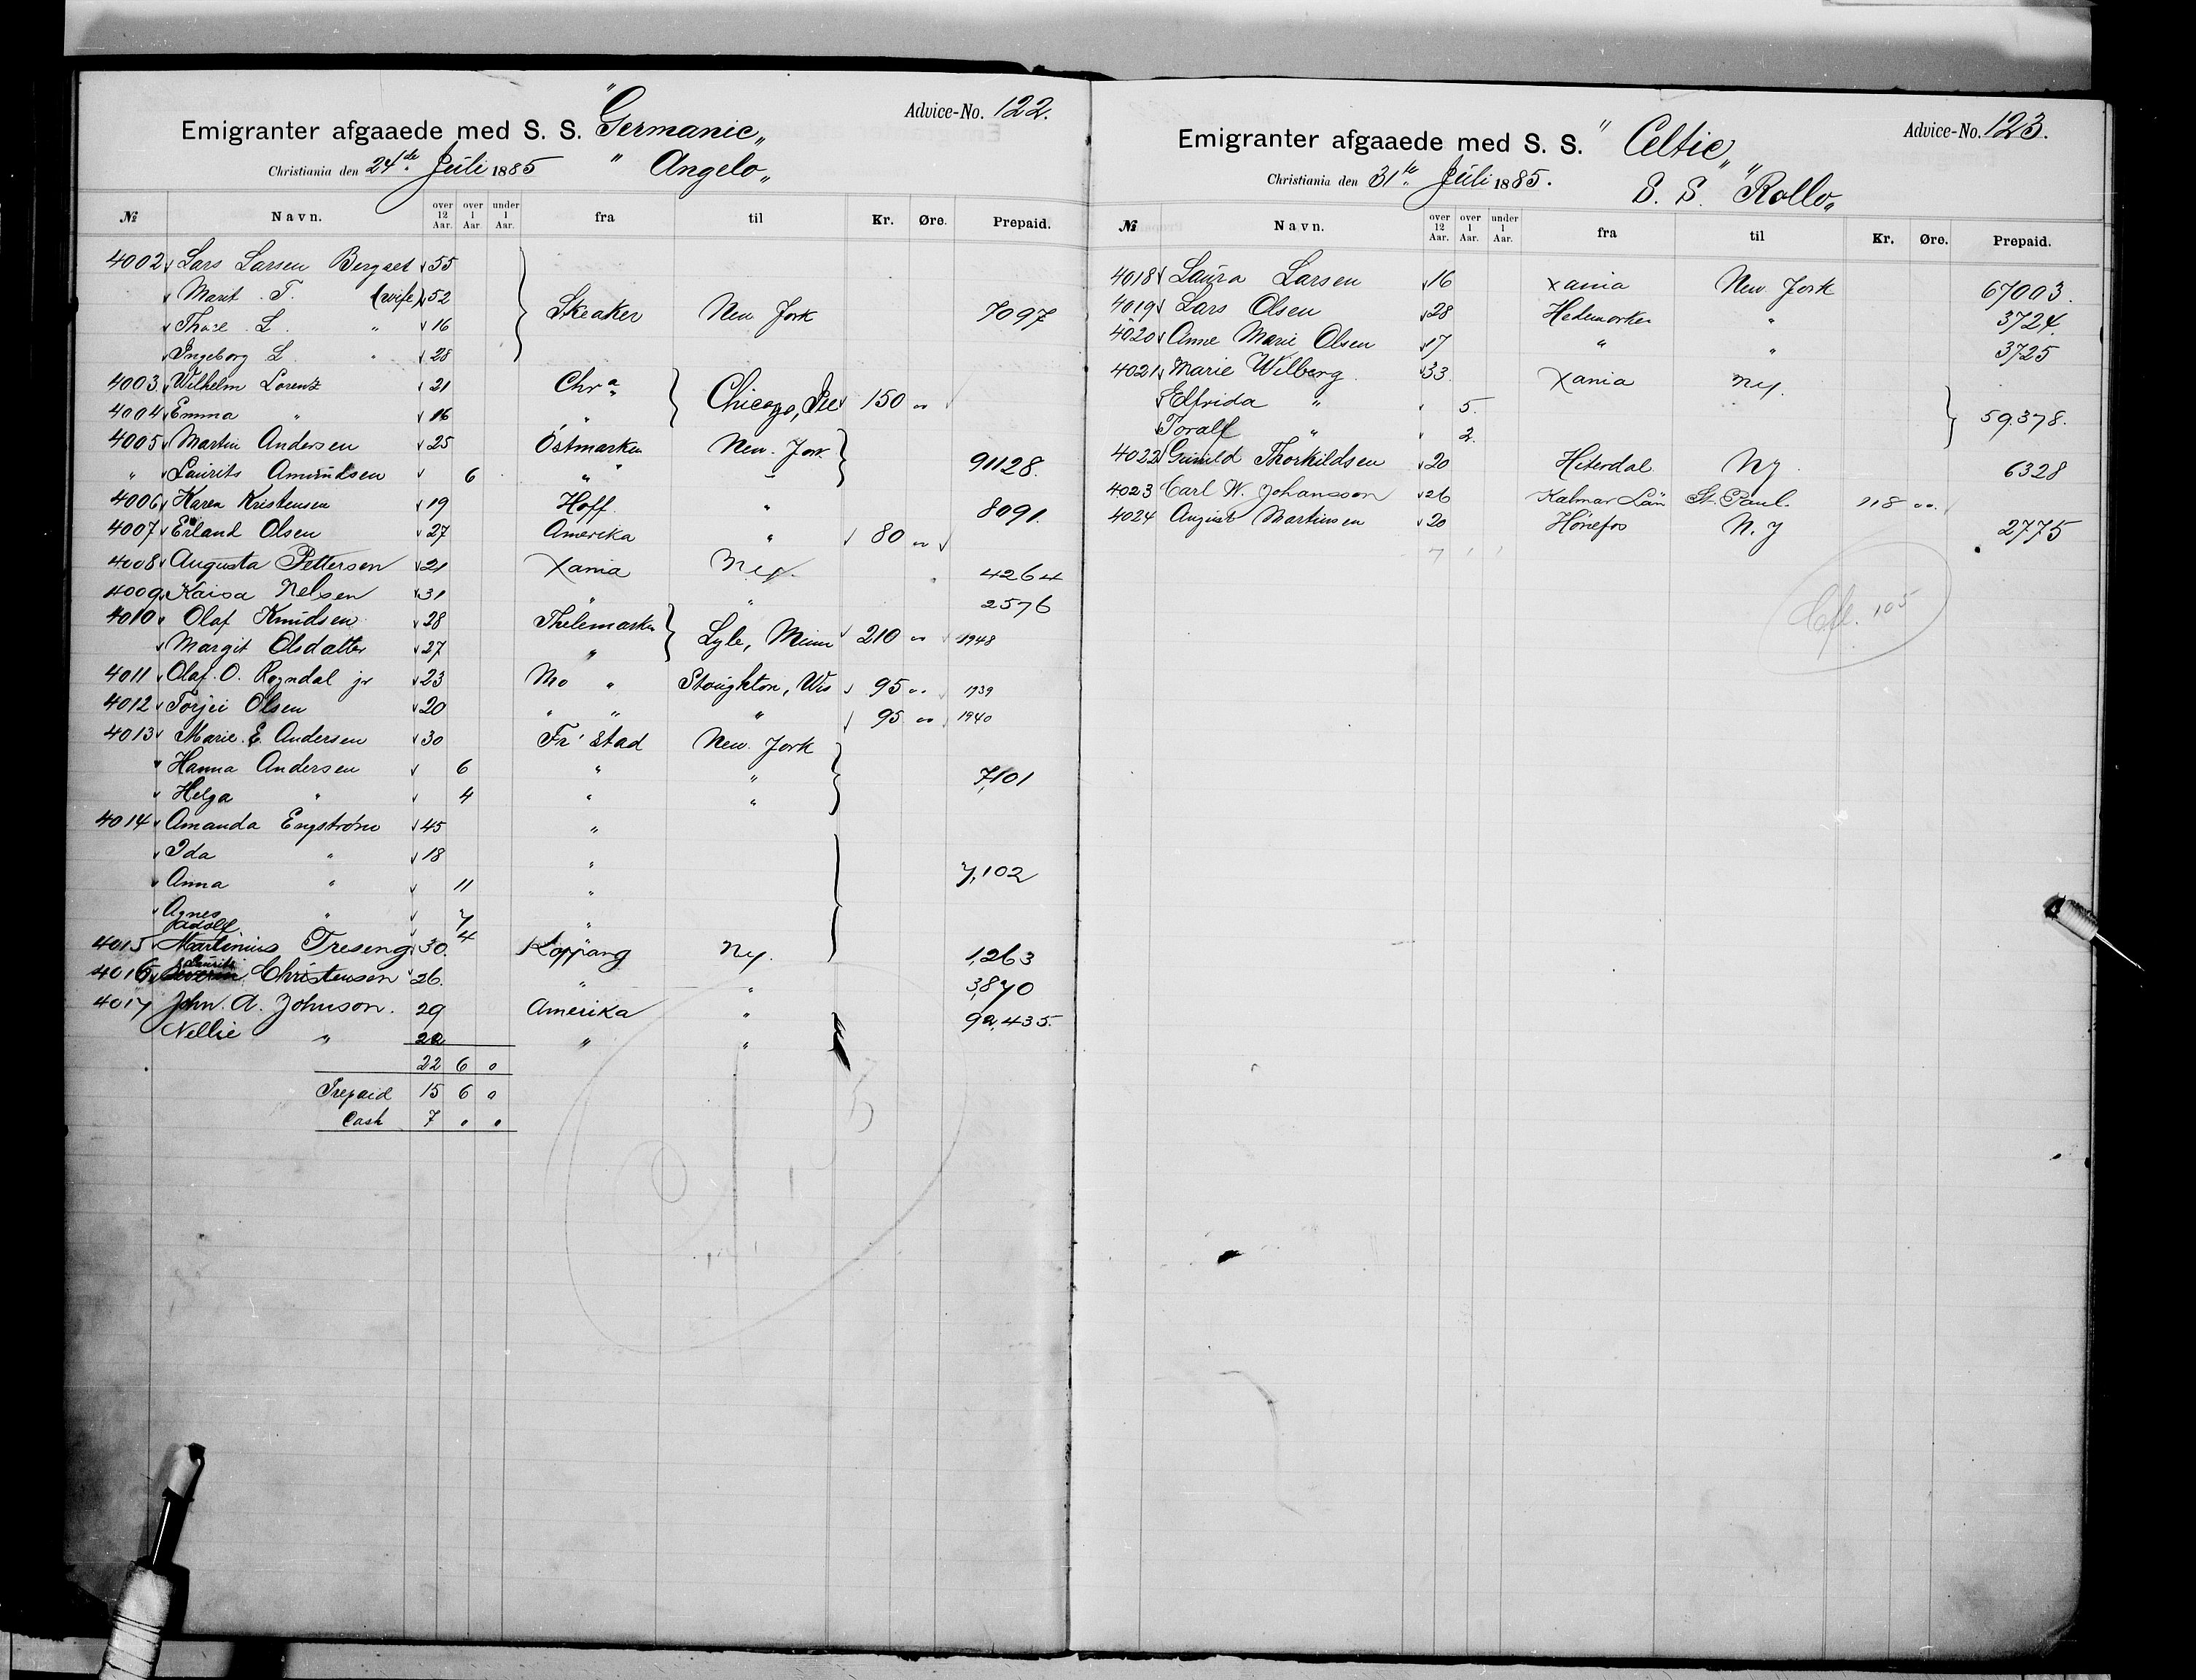 Advice-No. 122.
Emigranter afgaaede med S. S. "Germanic„
Christiania den 24de Juli 1885 " Angelo„
№ Navn. over 12 Aar. over 1 Aar. under 1 Aar. fra til Kr. Øre. Prepaid.
4002 Lars Larsen 55
Marit T. (wife) 52 Skeaker New York 7097
L. " 16
Ingeborg L. " 28
4003 Wilhelm Lorenz 21 Chra Chicago, 150 "
4004 Emma " 16 "
4005 Martin Andersen 25 Østmarken New York 91128.
" Laurits Amundsen 6 " "
4006 Karen Kristensen 19 Hoff " 8091.
4007 Erland Olsen 27 Amerika " 80 "
4008 Augusta Pettersen 21 Xania NY. 4264
4009 Kaisa Nelsen 31 " " 2576
4010 Olaf Knudsen 28 Thelemarken Lyle, Minn 210 " 1948
Margit Olsdatter 27 "
4011 Olaf O. Rogndal jr 23 Mo " Stoughton, Wis 95 " 1939
4012 Torjei Olsen 20 " " " 95 " 1940
4013 Marie E. Andersen 30 Fr'stad New York
Hanna Andersen 6 " " 7,101
Helga " 4 " "
4014 Amanda Engstrøm 45 "
Ida " 18 "
Anna " 11 " 7,102
Agnes " 7 "
Adolf 4 "
4015 Martinius Treseng 30. Koppang NY. 1,263
4016 Laurits Christensen 26. " " 3,870
4017 John. A. Johnson. 29 Amerika " 92,435.
Nellie " 22 " "
22 6 0
Prepaid 15 6 0
Cash 7 " "
Advice-No. 123.
Emigranter afgaaede med S. S. "Celtic„
Christiania den 31te Juli 1885. S. S. "Rollo„
№ Navn. over 12 Aar. over 1 Aar. under 1 Aar. fra til Kr. Øre. Prepaid.
4018 Laura Larsen 16 Xania New York 67003.
4019 Lars Olsen 28 Hedemarken " 3724.
4020 Anne Marie Olsen 17 " " 3725
4021 Marie Wilberg 33. Xania NY.
Elfrida " " 5. 59.378.
Toralf " " 2.
4022 Gunild Thorkildsen 20 Hiterdal NY 6328
4023 Carl W. Johansson 26 Kalmar Län St. Paul. 118 "
4024 August Martinsen 20 Hønefos N.Y 2775
105